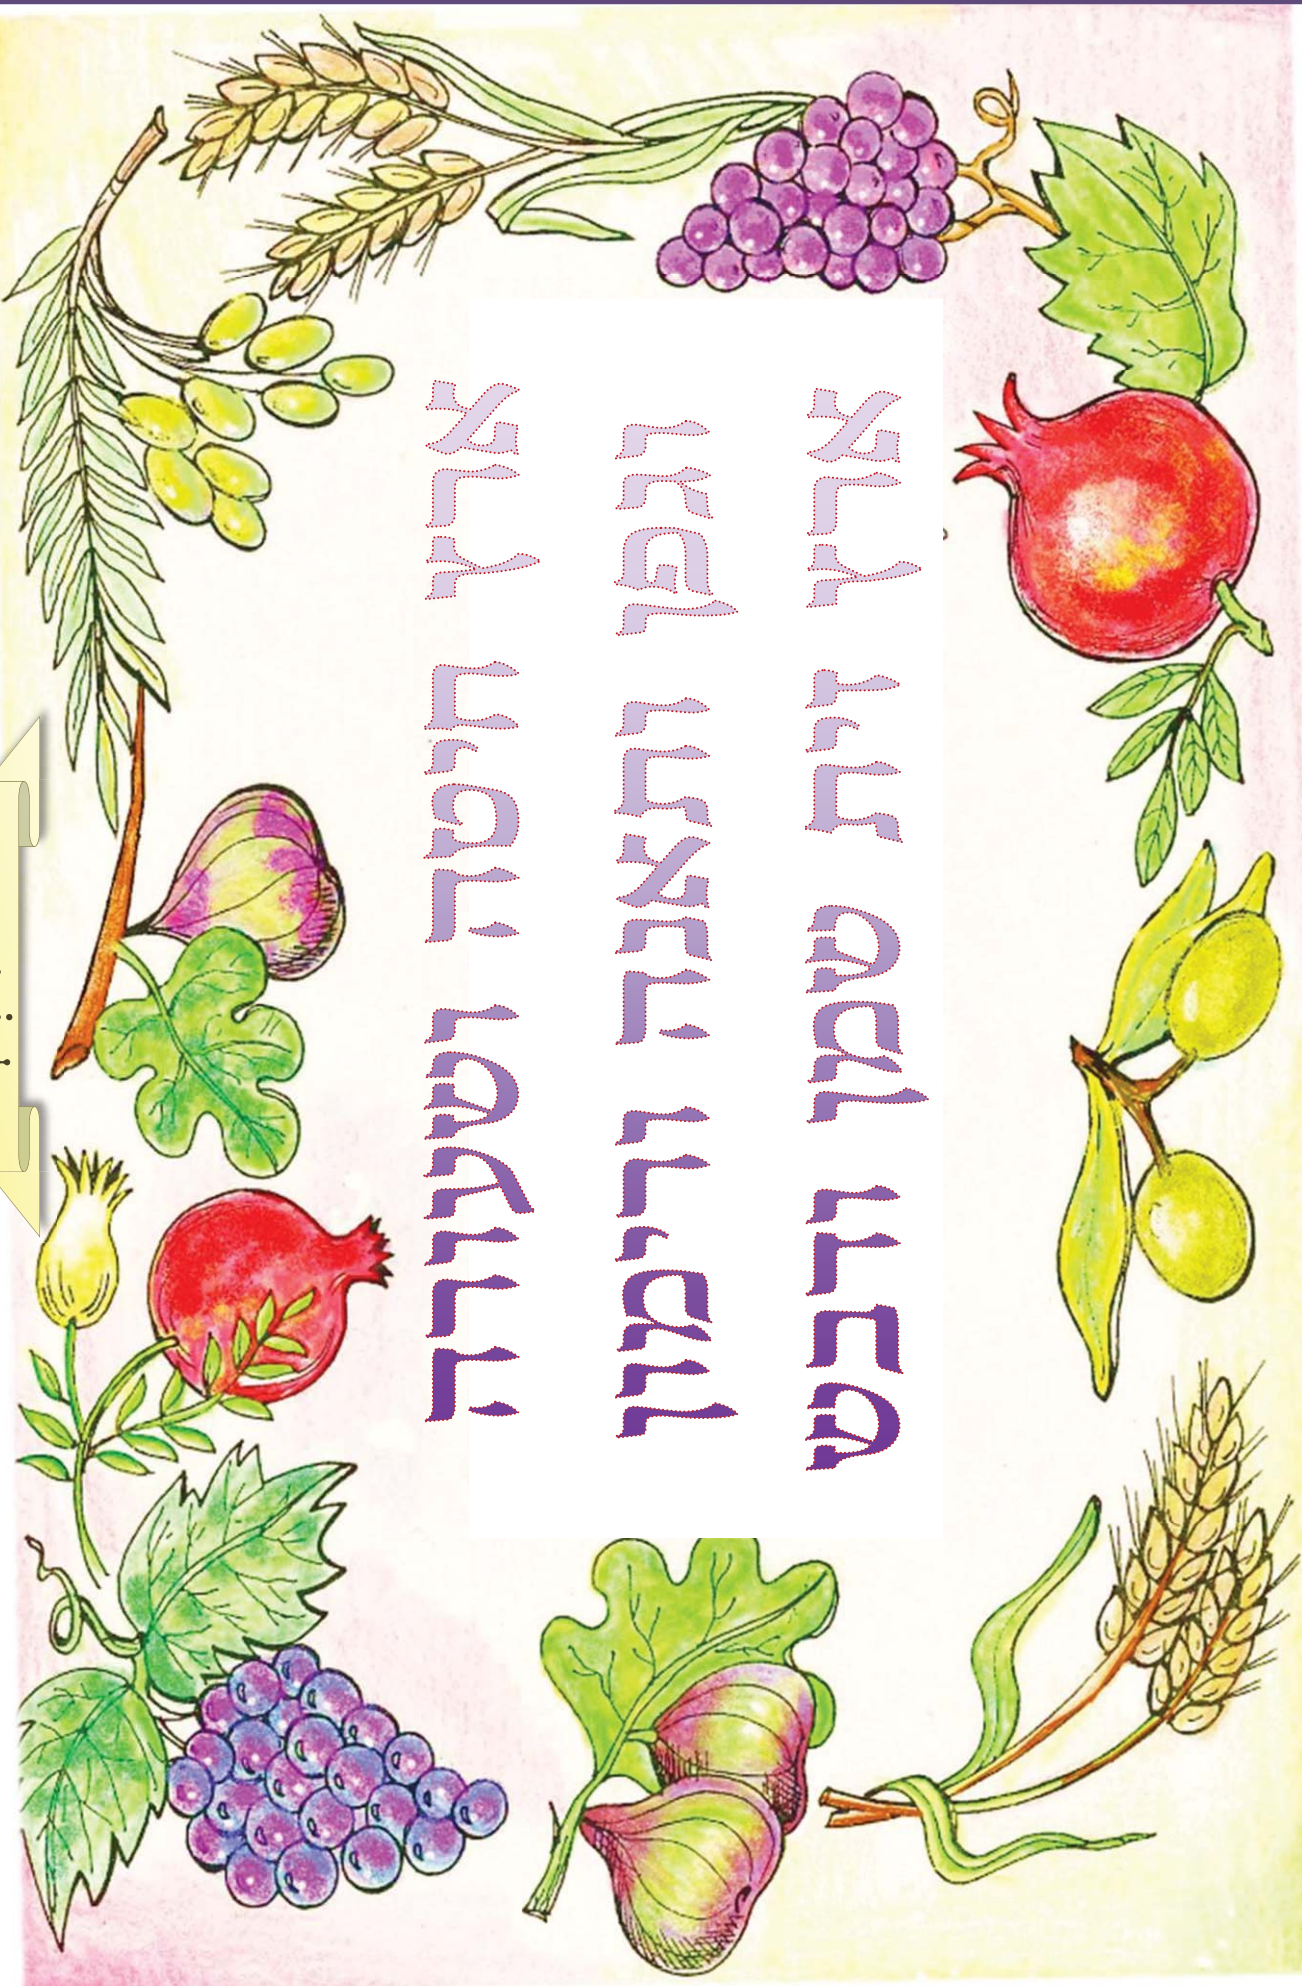 ארץ חיטה ושעורה
וגפן ותאנה ורימון
ארץ זית שמן ודבש